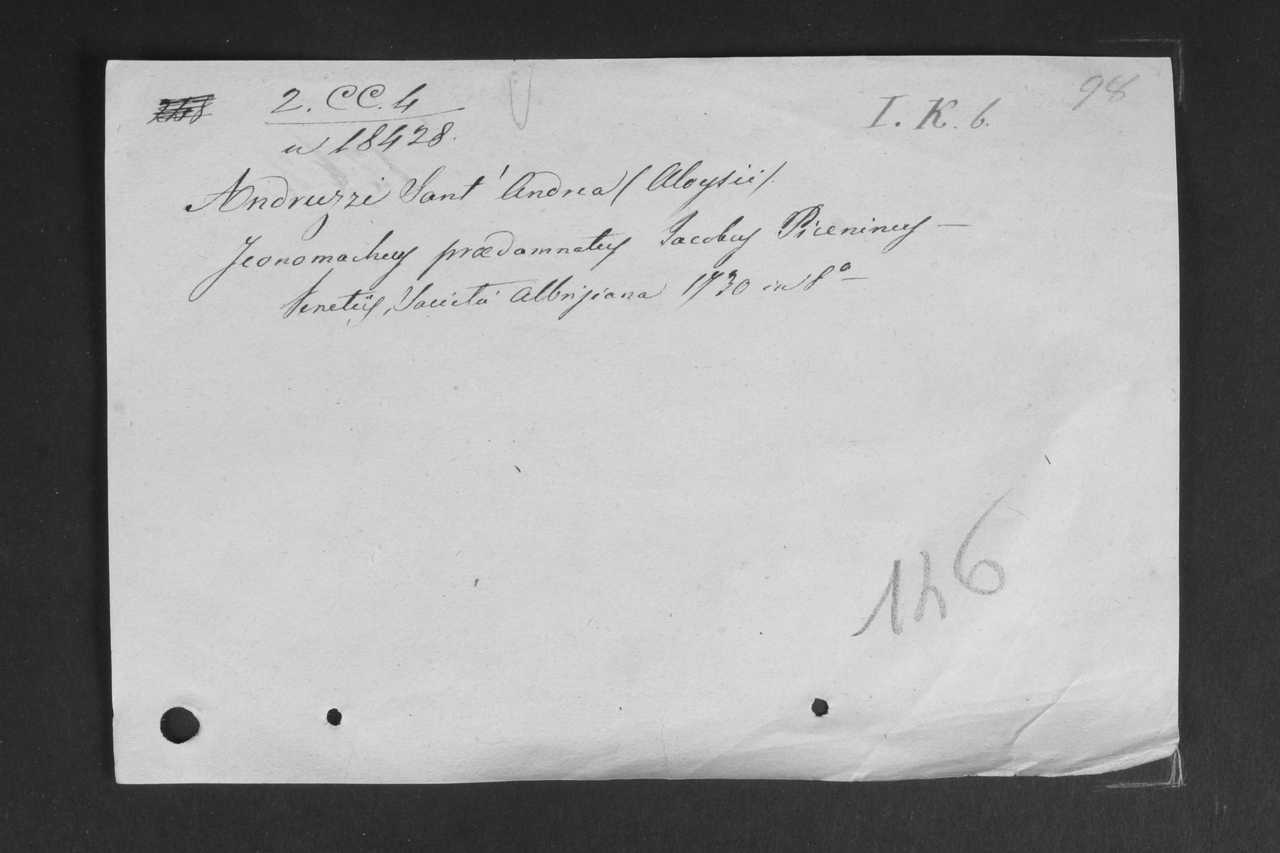 98
2. CC. 4
I. K. 6.
n 18428.
Andruzzi Sant' Andrea (Aloysii).
Iconomachus prædamnatus Jacobus Piceninus —
Venetiis, Società Albrisiana 1730 in 8º —
146